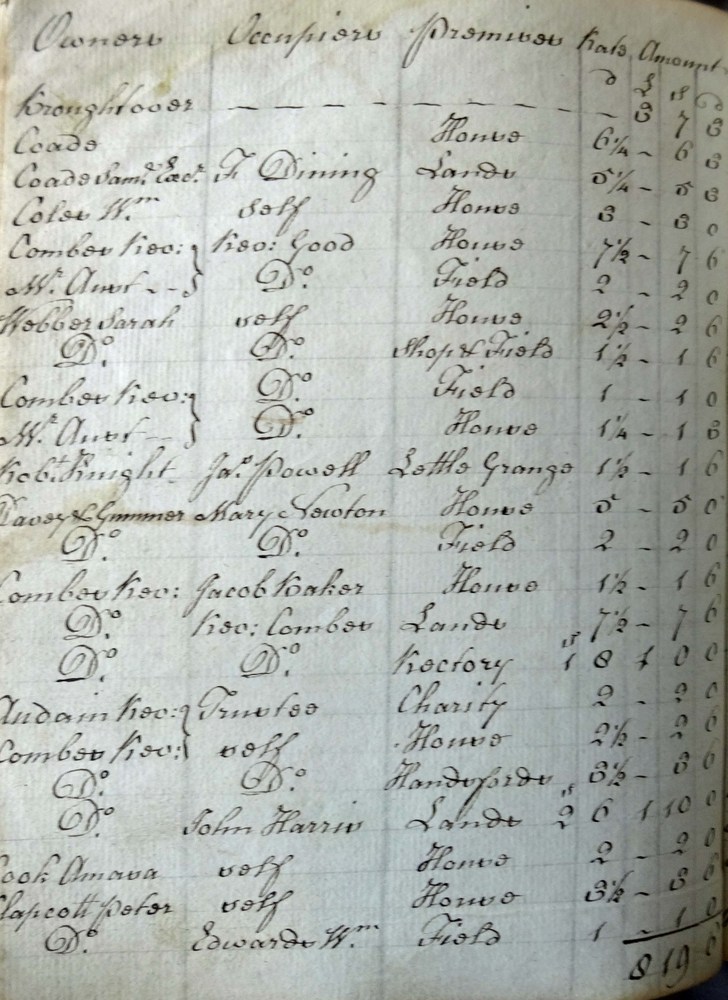 Owners Occupiers Premises Rate Amount
d £ s d
Broughtover - - - - - - - - 3 7 3
Coade House 6¼ - 6 3
Coade Sam.l Exc.r F Dining Lands 5¼ - 5 3
Coles W.m Self House 3 - 3 0
Combes Rev: } Rev: Good House 7½ - 7 6
Mr. Aust - - } Do. Field 2 - 2 0
Webber Sarah self House 2½ - 2 6
Do. Do. Shop & Field 1½ - 1 6
Combes Rev: } Do. Field 1 - 1 0
Mr. Aust - - } Do. House 1¼ - 1 3
Robt. Knight Jas. Powell Lettle Grange 1½ - 1 6
Davey & Gummer Mary Newton House 5 - 5 0
Do. Do. Field 2 - 2 0
Combes Rev: Jacob Baker House 1½ - 1 6
Do. Rev: Combes Lands 7½ - 7 6
Do. Do. Rectory 1s 8 1 0 0
Audain Rev: } Trustee Charity 2 - 2 0
Combes Rev: } self House 2½ - 2 6
Do. Do. Handsfords 3½ - 3 6
Do. John Harris Lands 2s 6 1 10 0
Cook Amasa self House 2 - 2 0
Clapcott Peter self House 3½ - 3 6
Do. Edwards W.m Field 1 - 1 0
8 19 0